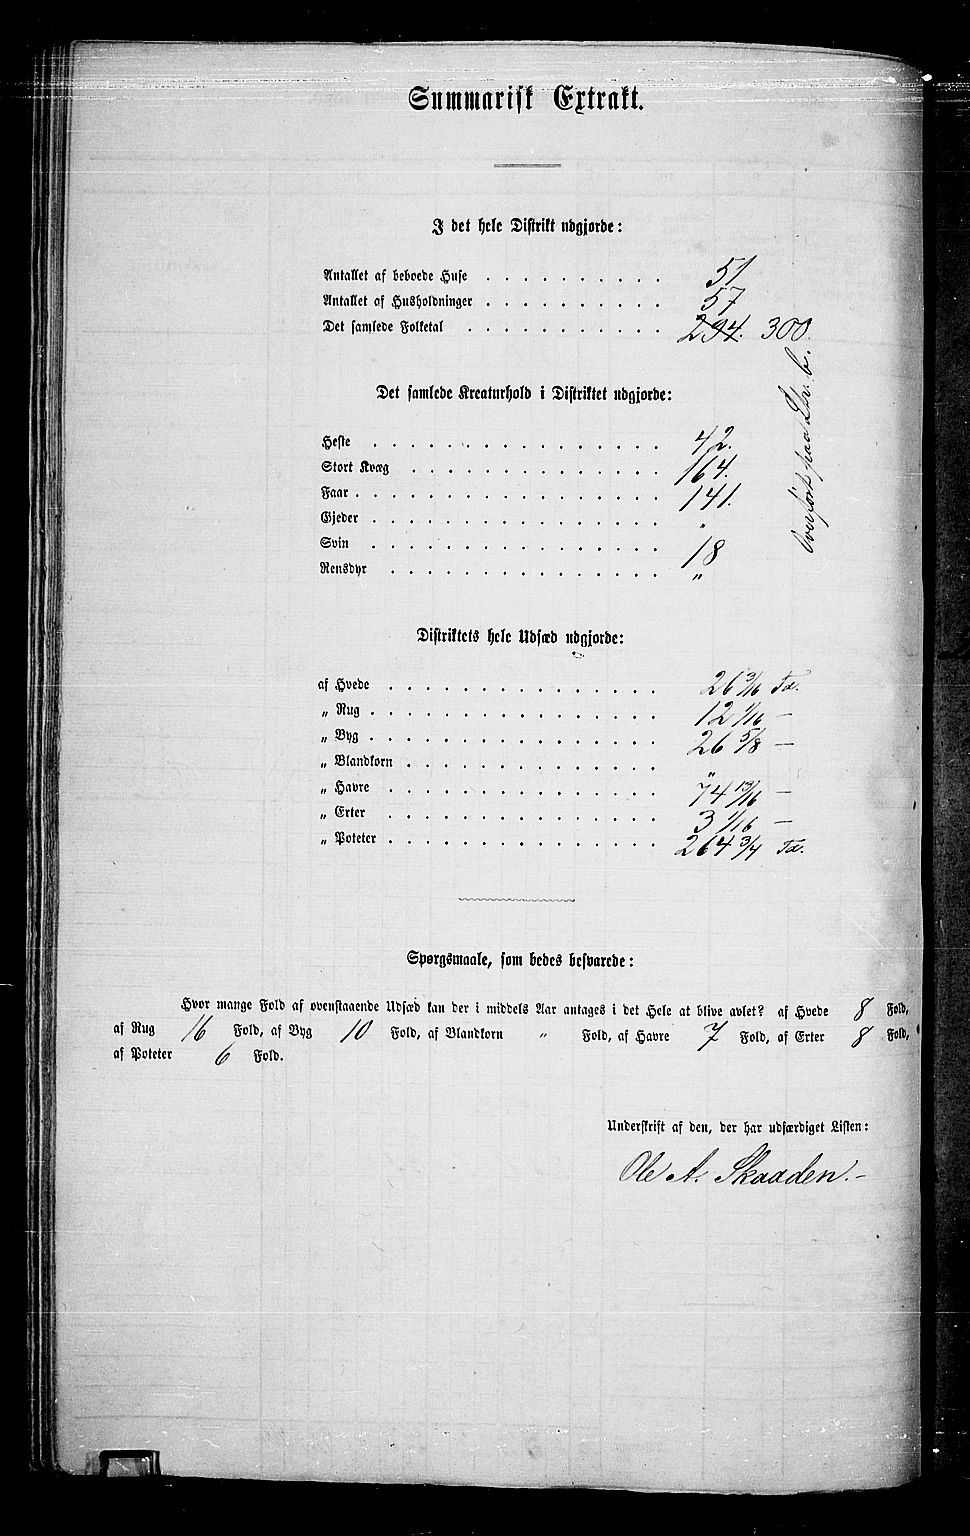 Summarisk Extrakt.
I det hele Distrikt udgjorde:
Antallet af beboede Huse . . . . . . . . . . 51
Antallet af Husholdninger . . . . . . . . . . 57
Det samlede Folketal . . . . . . . . . . . 294. 300.
Overført paa L. b.
Det samlede Kreaturhold i Distriktet udgjorde:
Heste . . . . . . . . . . . . . . . . 42.
Stort Kvæg . . . . . . . . . . . . . 164.
Faar . . . . . . . . . . . . . . . . . 141.
Gjeder . . . . . . . . . . . . . . . . "
Svin . . . . . . . . . . . . . . . . 18
Rensdyr . . . . . . . . . . . . . . . "
Distriktets hele Udsæd udgjorde:
af Hvede . . . . . . . . . . . . . . . 26 3/16 Td.
„ Rug . . . . . . . . . . . . . . . . 12 1/16 —
„ Byg . . . . . . . . . . . . . . . . 26 5/8 —
„ Blandkorn . . . . . . . . . . . . . "
„ Havre . . . . . . . . . . . . . . . 74 13/16 —
„ Erter . . . . . . . . . . . . . . . 3 1/16 —
„ Poteter . . . . . . . . . . . . . . . 264 3/4 Td.
Spørgsmaale, som bedes besvarede:
Hvor mange Fold af ovenstaaende Udsæd kan der i middels Aar antages i det Hele at blive avlet? af Hvede 8 Fold,
af Rug 16 Fold, af Byg 10 Fold, af Blandkorn " Fold, af Havre 7 Fold, af Erter 8 Fold,
af Poteter 6 Fold.
Underskrift af den, der har udfærdiget Listen:
Ole A. Skaaden.—